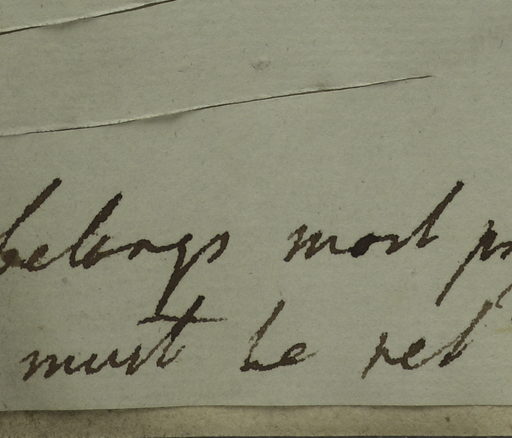 belongs most pr
must be ret